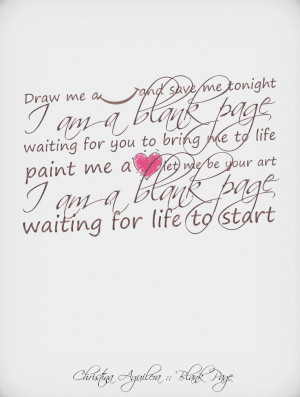 Draw me a and save me tonight
I am a blank page
waiting for you to bring me to life
paint me a let me be your art
I am a blank page
waiting for life to start
Christina Aguilera :: Blank Page